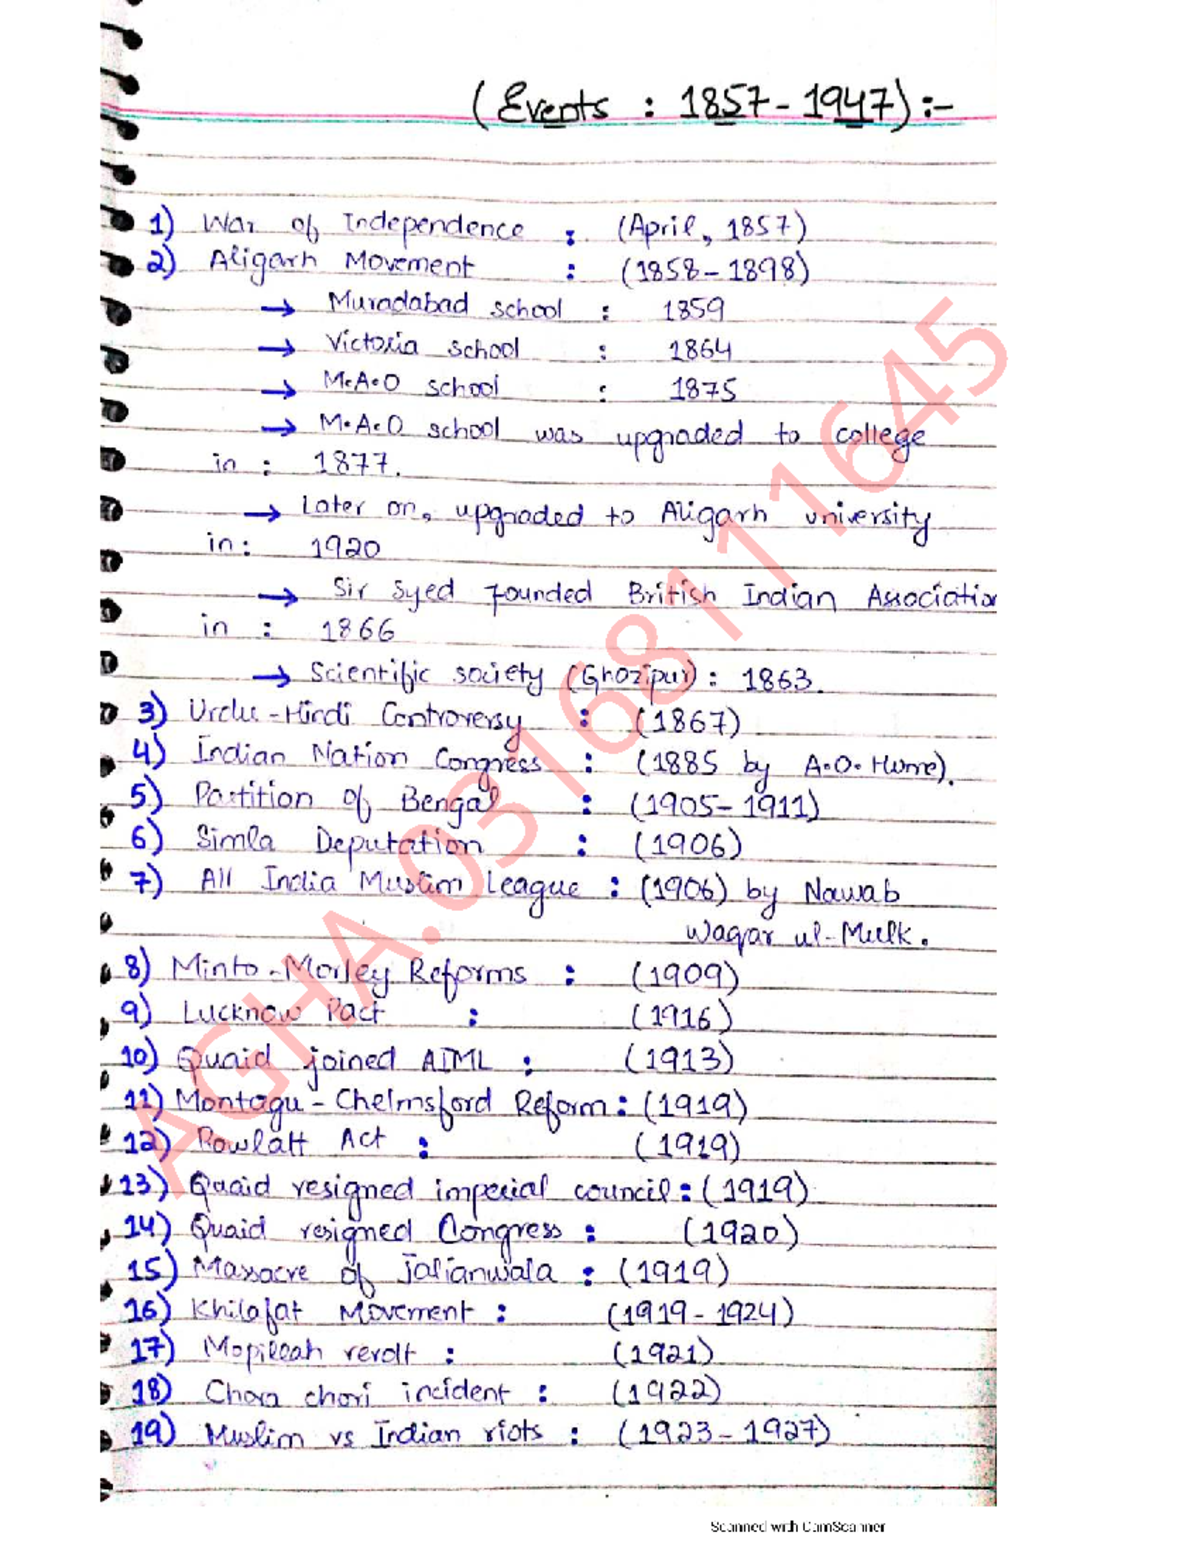 (Events : 1857 - 1947) :-
1) War of Independence : (April, 1857)
2) Aligarh Movement : (1858 - 1898)
→ Muradabad school : 1859
→ Victoria school : 1864
→ M.A.O school : 1875
→ M.A.O school was upgraded to college
in : 1877.
→ Later on, upgraded to Aligarh university
in : 1920
→ Sir Syed founded British Indian Association
in : 1866
→ Scientific society (Ghazipur) : 1863.
3) Urdu - Hindi Controversy : (1867)
4) Indian Nation Congress : (1885 by A.O. Hume).
5) Partition of Bengal : (1905 - 1911)
6) Simla Deputation : (1906)
7) All India Muslim League : (1906) by Nawab
Waqar ul-Mulk.
8) Minto - Morley Reforms : (1909)
9) Lucknow Pact : (1916)
10) Quaid joined AIML : (1913)
11) Montagu - Chelmsford Reform : (1919)
12) Rowlatt Act : (1919)
13) Quaid resigned imperial council : (1919)
14) Quaid resigned Congress : (1920)
15) Massacre of jalianwala : (1919)
16) Khilafat Movement : (1919 - 1924)
17) Mopillah revolt : (1921)
18) Chora chori incident : (1922)
19) Muslim vs Indian riots : (1923 - 1927)
AGHA.03168111645
Scanned with CamScanner